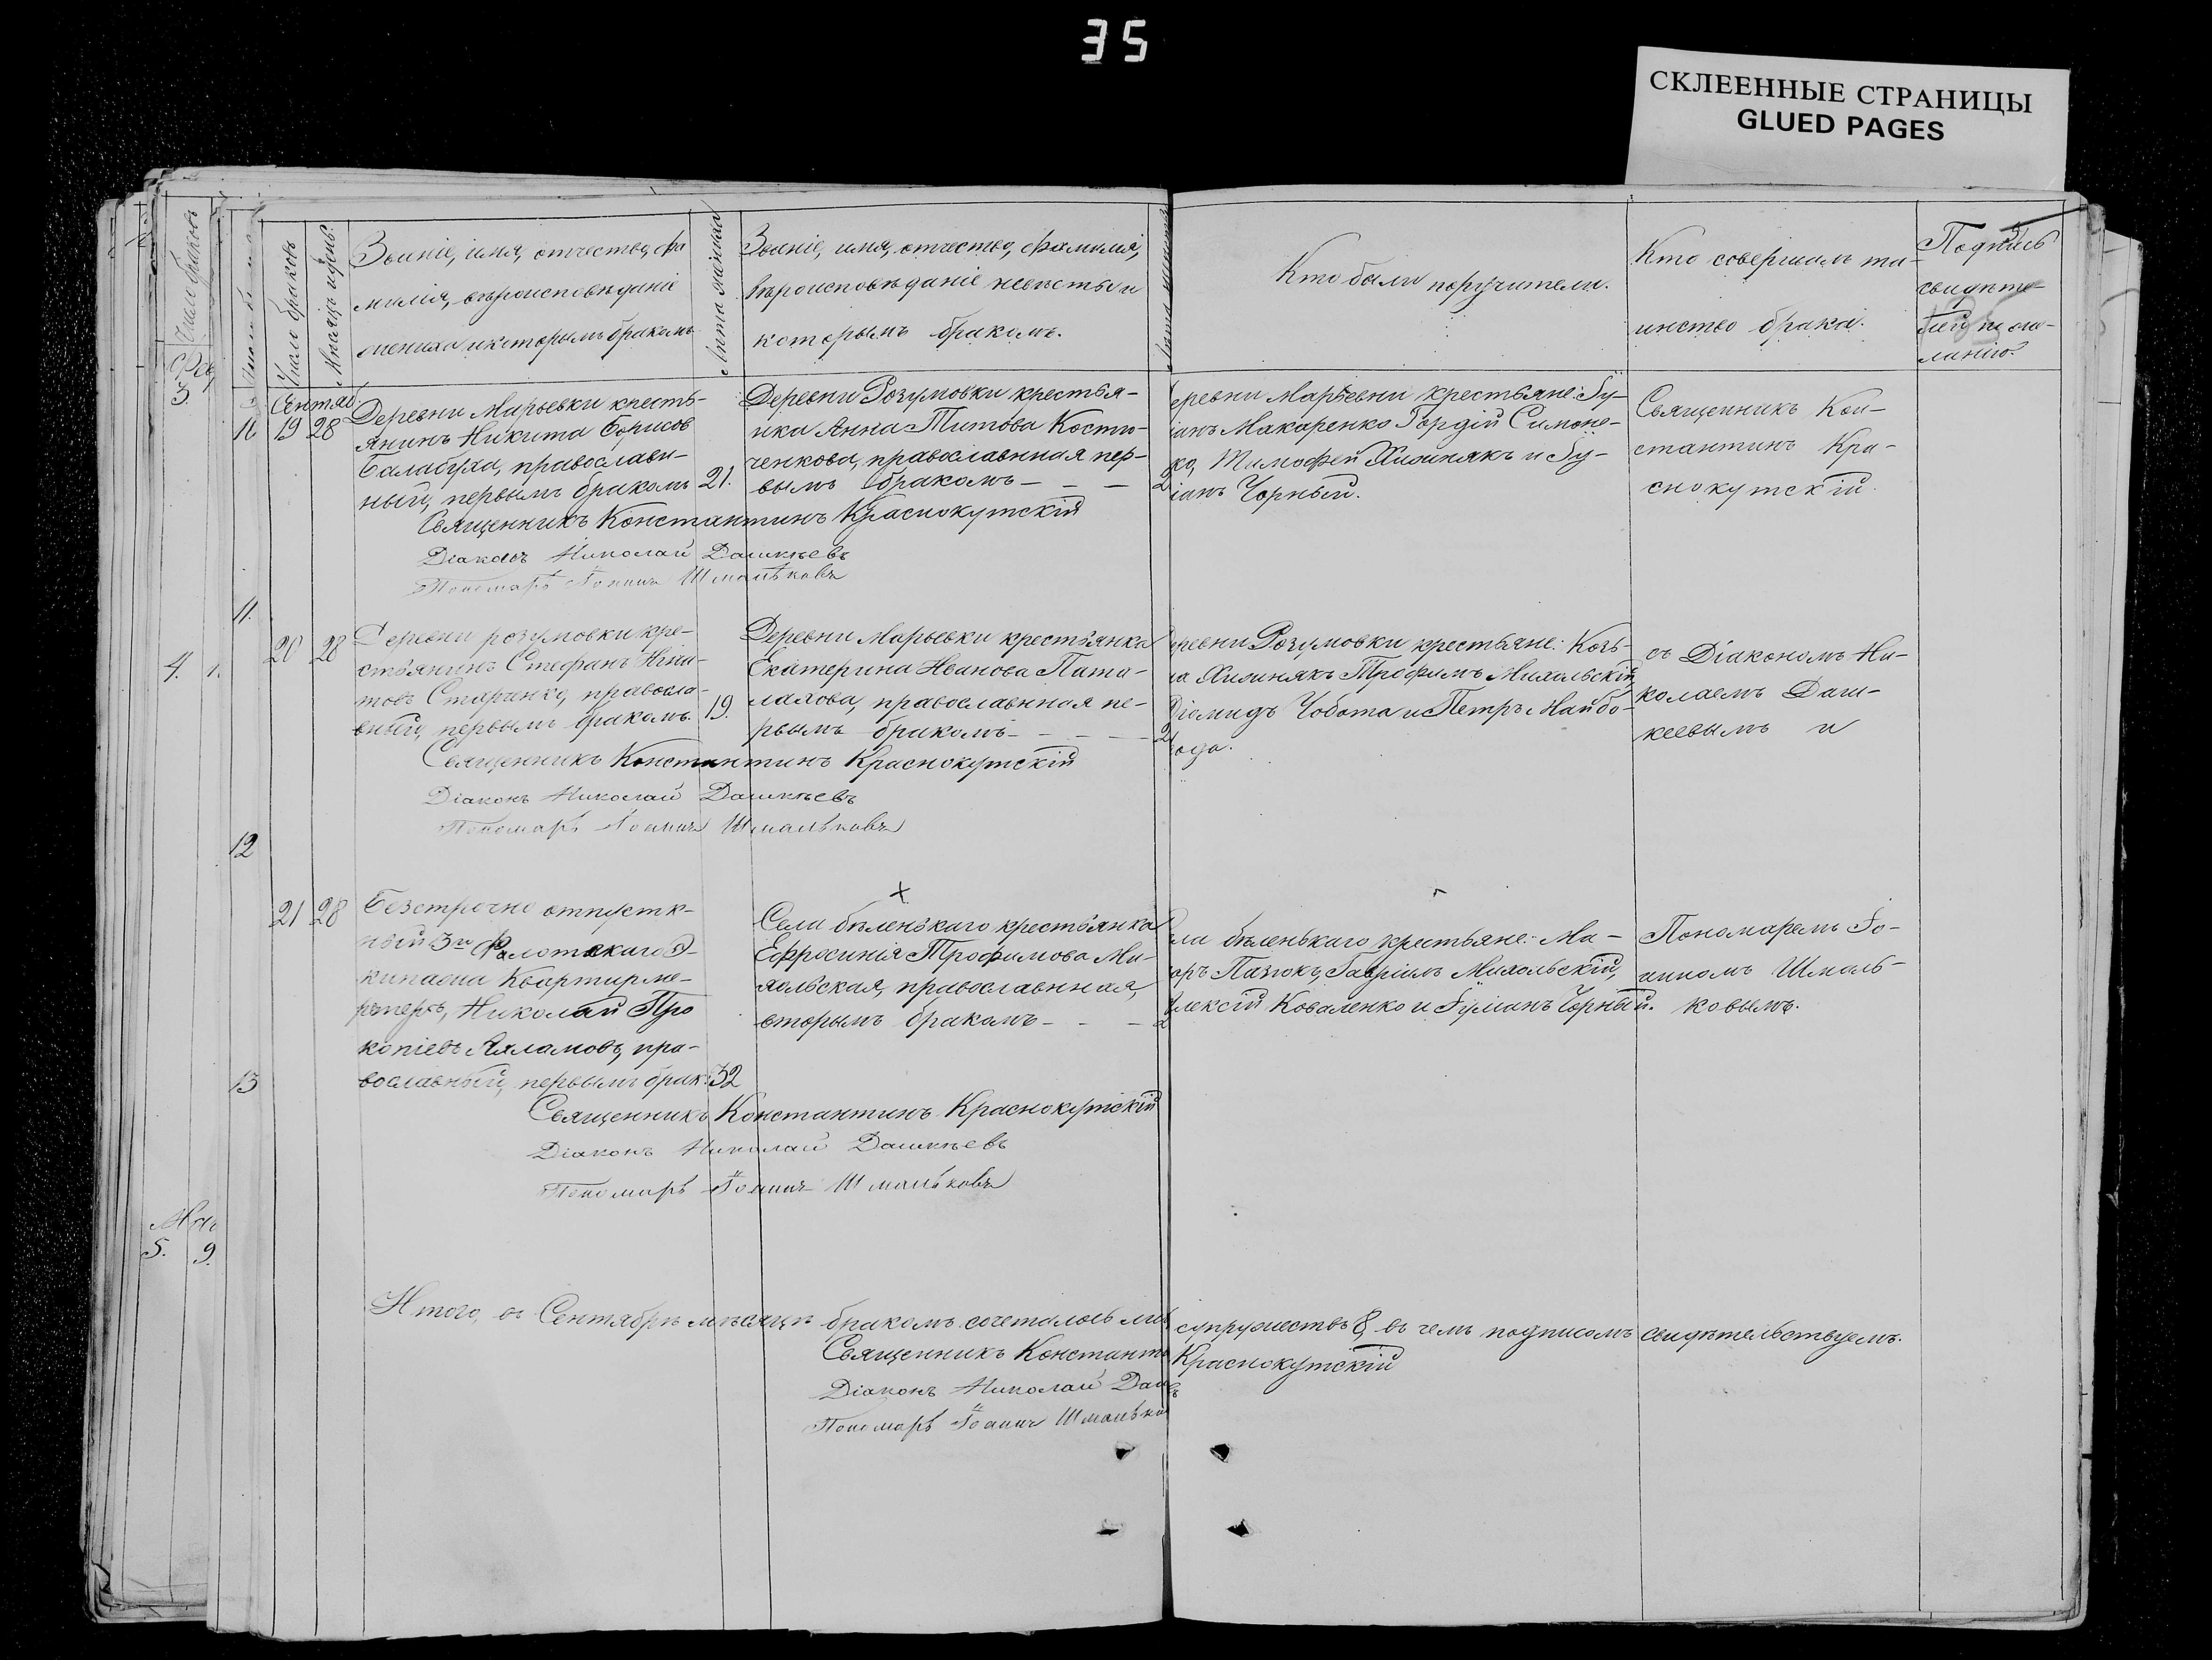 35
СКЛЕЕННЫЕ СТРАНИЦЫ
GLUED PAGES
Число браковъ
Мѣсяцъ и день.
Званіе, имя, отчество, фа
милія, вѣроисповѣданіе
жениха и которымъ бракомъ
Лѣта жениха
Званіе, имя, отчество, фамилія,
вѣроисповѣданіе невѣсты и
которымъ бракомъ.
Кто были поручители.
Кто совершалъ та-
инство брака.
Подпись
свидѣте-
лей по же-
ланію.
Сентяб.
19 28
Деревни Марьевки кресть-
янинъ Никита Борисов
Балабуха, православ-
ный, первымъ бракомъ 21.
Деревни Розумовки крестья-
нка Анна Титова Кости-
ченкова, православная пер-
вымъ бракомъ - - - 2
еревни Марьевки крестьяне: Іу-
іанъ Макаренко Гордій Симоне-
ко, Тимофей Хижнякъ и Іу-
іанъ Чорный.
Священникъ Кон-
стантинъ Кра-
снокутскій.
Священникъ Константинъ Краснокутскій
Діаконъ Николай Дашкѣевъ
Пономарь Іоаннъ Шмальковъ
11.
20 28
Деревни розумовки кре-
стьянинъ Стефанъ Ники-
товъ Старченко, правосла-
вный, первымъ бракомъ. 19.
Деревни Марьевки крестьянка
Екатерина Иванова Пата-
лахова, православная пе-
рвымъ бракомъ - - - - 2
еревни Розумовки крестьяне: Козь-
а Хижнякъ Трофимъ Михальскій,
Діомидъ Чобота и Петръ Найбо-
ода.
съ Діакономъ Ни-
колаемъ Даш-
кеевымъ и
Священникъ Константинъ Краснокутскій
Діаконъ Николай Дашкѣевъ
Пономарь Іоаннъ Шмальковъ
12
21 28
Безсрочно отпуск-
ной 3го Флотскаго Э-
кипажа Квартирме-
ръ, Николай Про
копіевъ Ахламовъ, пра-
вославный, первымъ брак. 32
Села бѣленькаго крестьянка
Ефросинія Трофимова Ми-
хольская, православная,
вторымъ бракомъ - - - 2
ла бѣленькаго крестьяне: Ма-
аръ Пазюкъ, Гавріилъ Михольскій,
лексій Коваленко и Іуліанъ Чорный.
Пономаремъ Іо-
анномъ Шмаль-
ковымъ.
13
Священникъ Константинъ Краснокутскій
Діаконъ Николай Дашкѣевъ
Пономарь Іоаннъ Шмальковъ
4.
5. 9.
Итого, въ Сентябрѣ мѣсяцѣ бракомъ сочеталось супружествъ 8, въ чемъ подписомъ свидѣтельствуемъ.
Священникъ Константи Краснокутскій
Діаконъ Николай Даш
Пономарь Іоаннъ Шмалько